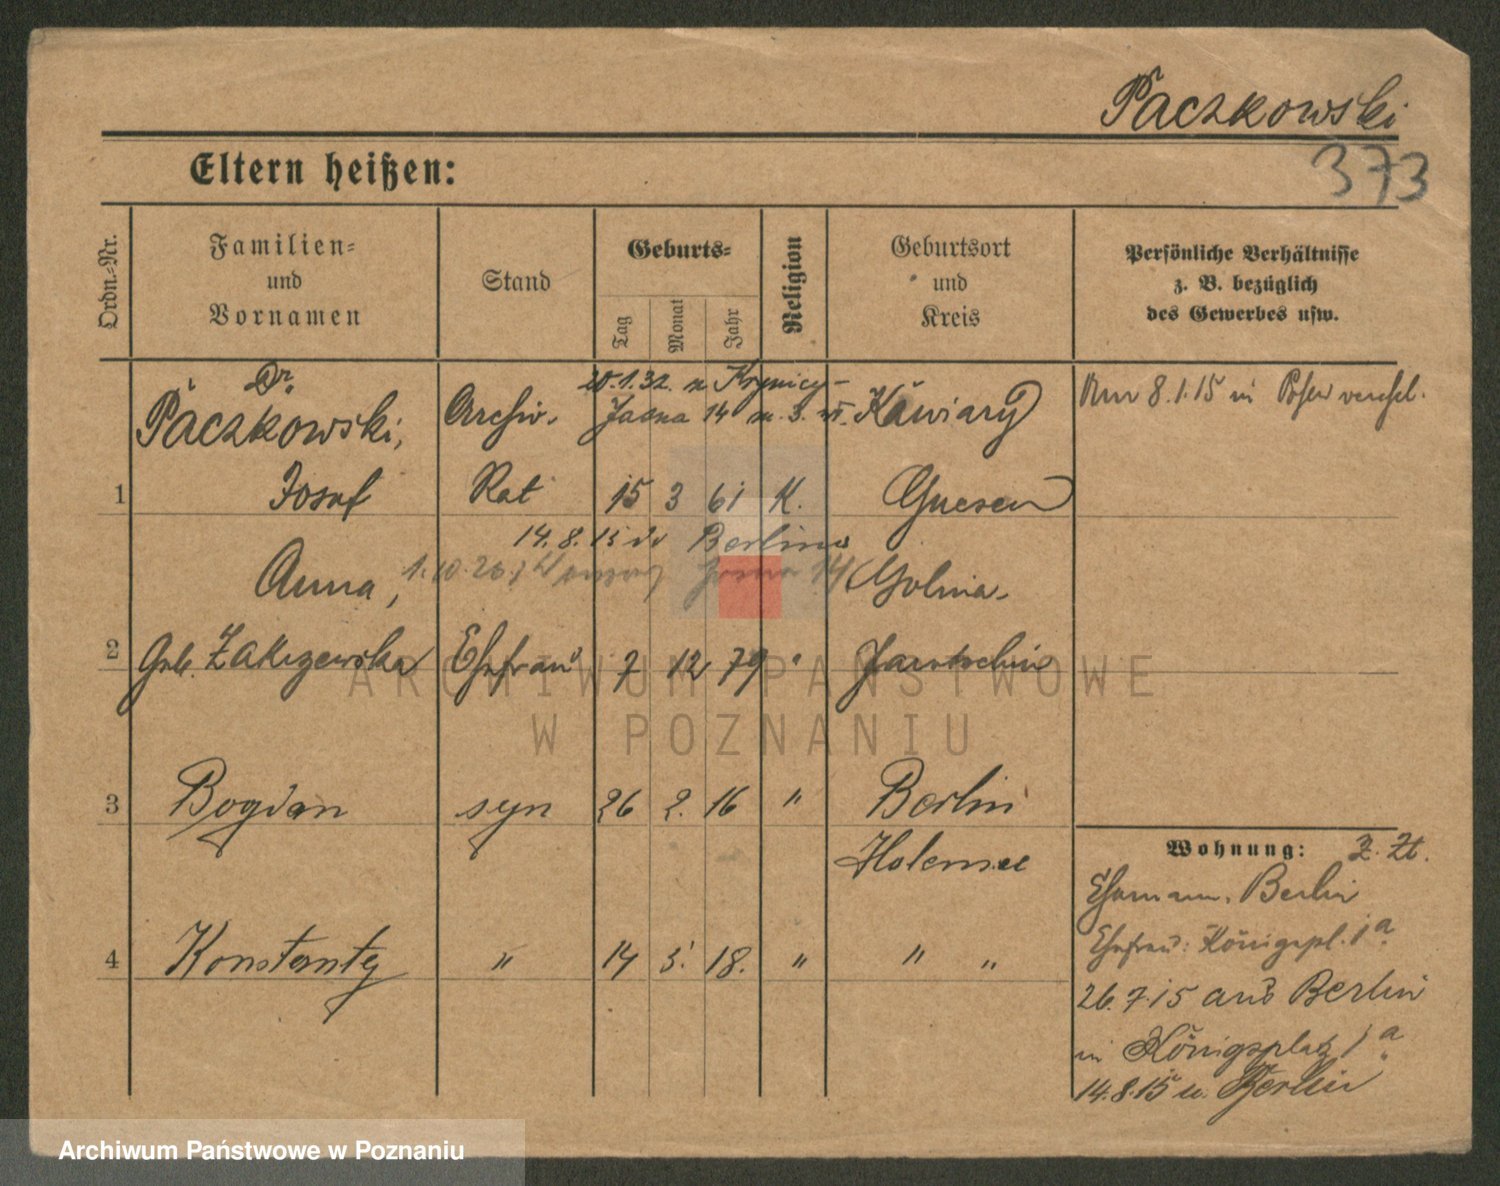 Paczkowski
373
Eltern heißen:
Ordn.-Nr.
Familien-
und
Vornamen
Stand
Geburts-
Tag
Monat
Jahr
Religion
Geburtsort
und
Kreis
Persönliche Verhältnisse
z. B. bezüglich
des Gewerbes usw.
Dr.
20.1.32. n Krynicy-
Jasna 14
Paczkowski,
Archiv.
Am 8.1.15 in Posen
1 Josef Rat 15 3 61 K. Gnesen
14.8.15 Berlin
Anna, 1.10.26. Jasna 14 Golina.
2 Geb. Zakrzewska Ehefrau 7 12 79 " Jarotschin
3 Bogdan syn 26 2. 16 " Berlin
Halensee
4 Konstanty " 14 5. 18. " " "
Wohnung: z. Zt.
Ehemann. Berlin
Ehefrau: Königspl. 1a
26.7.15 aus Berlin
in Königsplatz 1a
14.8.15 n. Berlin
ARCHIWUM PAŃSTWOWE
W POZNANIU
Archiwum Państwowe w Poznaniu